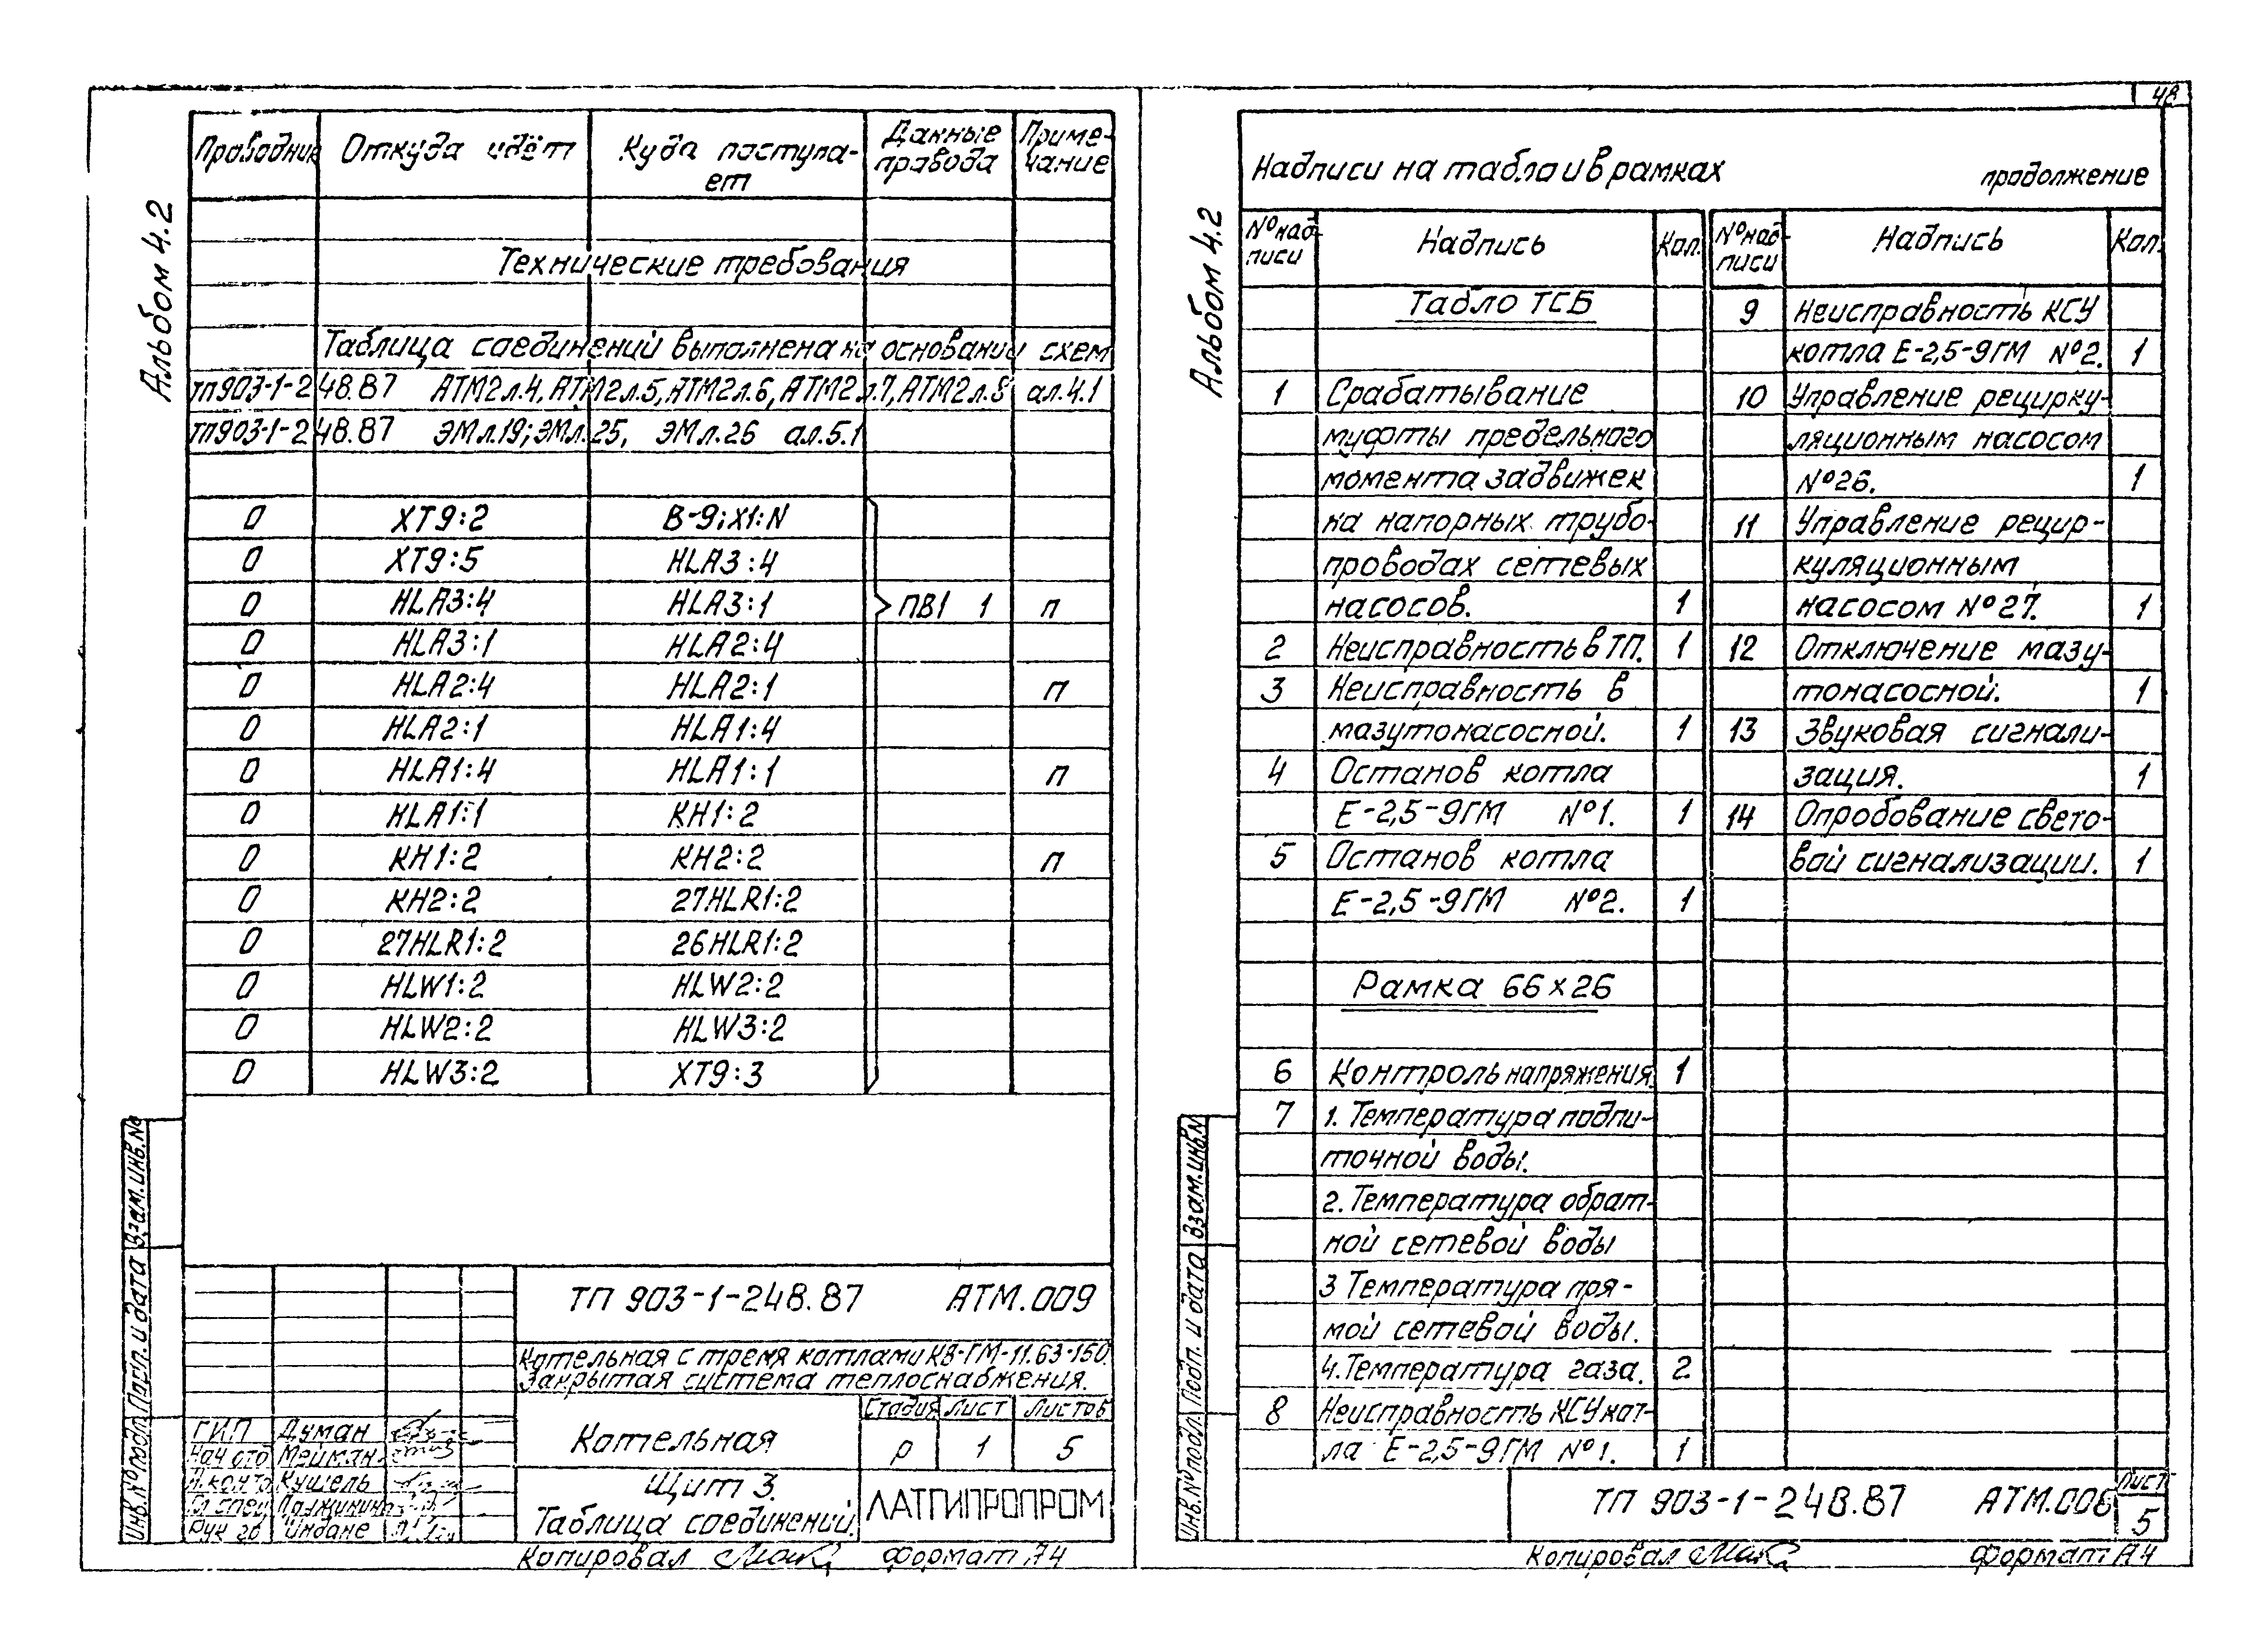 48
Альбом 4.2
Проводник Откуда идёт Куда поступа-ет Данные провода Приме-чание
Технические требования
Таблица соединений выполнена на основании схем
ТП903-1-248.87 АТМ2л.4, АТМ2л.5, АТМ2л.6, АТМ2л.7, АТМ2л.8 ал.4.1
ТП903-1-248.87 ЭМл.19; ЭМл.25, ЭМл.26 ал.5.1
0 XT9:2 В-9; X1:N
0 XT9:5 HLA3:4
0 HLA3:4 HLA3:1 ПВ1 1 п
0 HLA3:1 HLA2:4
0 HLA2:4 HLA2:1 п
0 HLA2:1 HLA1:4
0 HLA1:4 HLA1:1 п
0 HLA1:1 KH1:2
0 KH1:2 KH2:2 п
0 KH2:2 27HLR1:2
0 27HLR1:2 26HLR1:2
0 HLW1:2 HLW2:2
0 HLW2:2 HLW3:2
0 HLW3:2 XT9:3
Инв.№подл. Подп. и дата Взам.инв.№
ТП 903-1-248.87 АТМ.009
Котельная с тремя котлами КВ-ГМ-11.63-150.
Закрытая система теплоснабжения.
Котельная
Стадия Лист Листов
р 1 5
ГИП Думан
Нач отд Мейман
Н.контр Кушель
Гл.спец
Рук гр
Щит 3.
Таблица соединений.
ЛАТГИПРОПРОМ
Копировал Формат А4
Альбом 4.2
Надписи на табло и в рамках продолжение
№ над-писи Надпись Кол.
Табло ТСБ
1 Срабатывание
муфты предельного
момента задвижек
на напорных трубо-
проводах сетевых
насосов. 1
2 Неисправность в ТП. 1
3 Неисправность в
мазутонасосной. 1
4 Останов котла
Е-2,5-9ГМ №1. 1
5 Останов котла
Е-2,5-9ГМ №2. 1
Рамка 66×26
6 Контроль напряжения. 1
7 1. Температура подпи-
точной воды.
2. Температура обрат-
ной сетевой воды
3 Температура пря-
мой сетевой воды.
4. Температура газа. 2
8 Неисправность КСУ кот-
ла Е-2,5-9ГМ №1. 1
№ над-писи Надпись Кол.
9 Неисправность КСУ
котла Е-2,5-9ГМ №2. 1
10 Управление рецирку-
ляционным насосом
№26. 1
11 Управление рецир-
куляционным
насосом №27. 1
12 Отключение мазу-
тонасосной. 1
13 Звуковая сигнали-
зация. 1
14 Опробование свето-
вой сигнализации. 1
Инв.№подл. Подп. и дата Взам.инв.№
ТП 903-1-248.87 АТМ.008
Лист
5
Копировал Формат А4